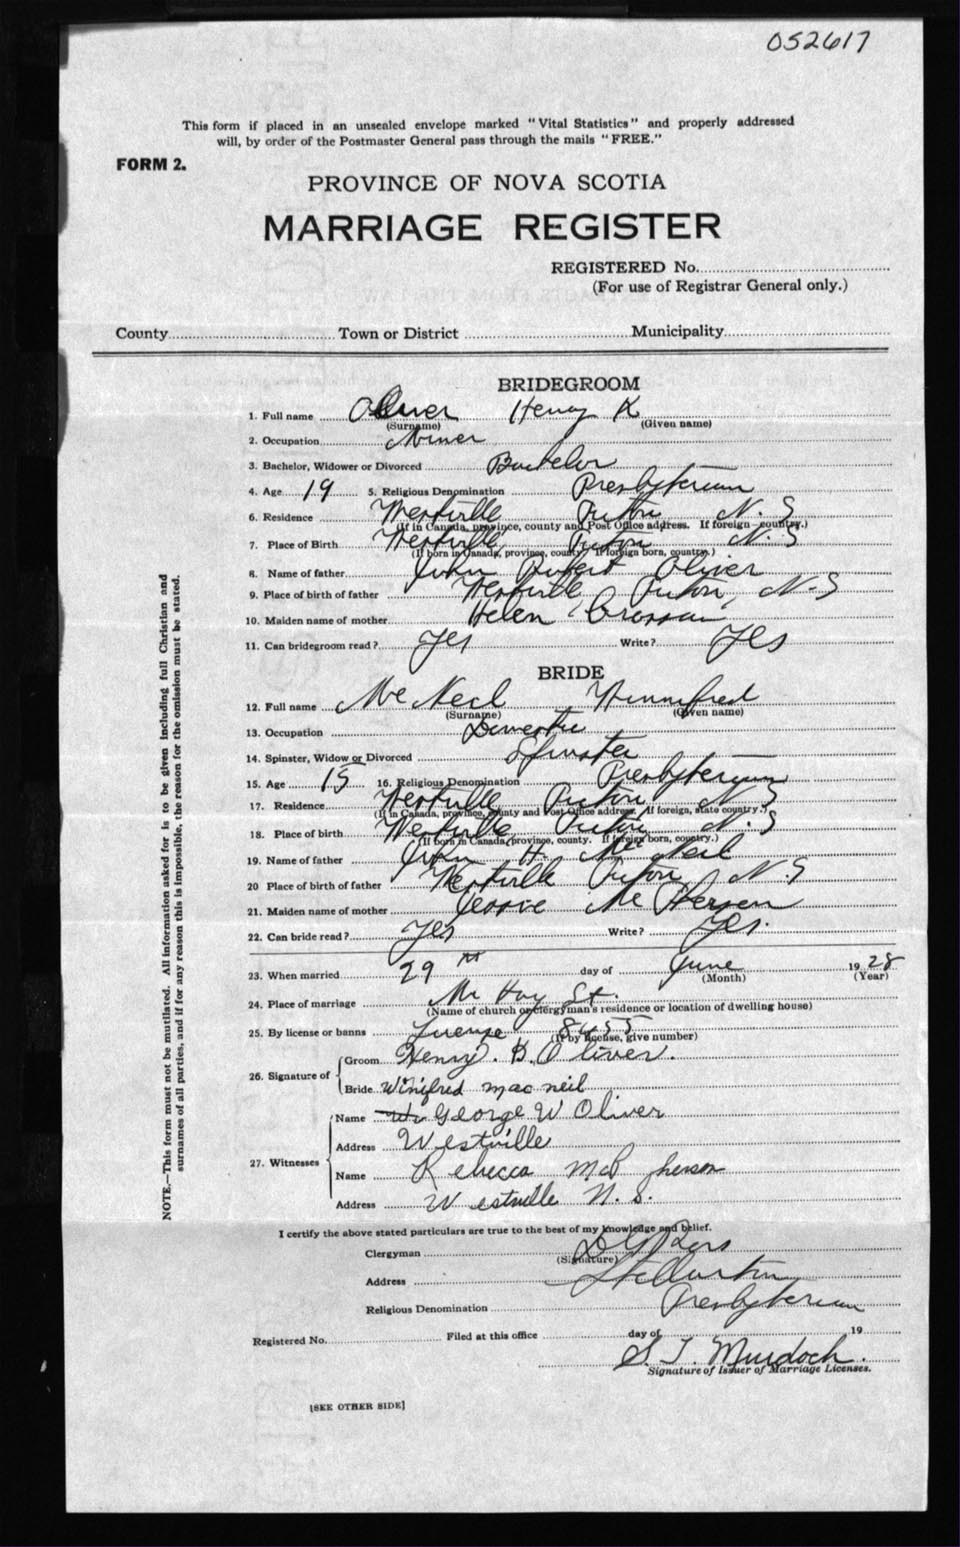 052617
This form if placed in an unsealed envelope marked "Vital Statistics" and properly addressed
will, by order of the Postmaster General pass through the mails "FREE."
FORM 2.
PROVINCE OF NOVA SCOTIA
MARRIAGE REGISTER
REGISTERED No.
(For use of Registrar General only.)
County Town or District Municipality
BRIDEGROOM
1. Full name Oliver Henry K
(Surname) (Given name)
2. Occupation Miner
3. Bachelor, Widower or Divorced Bachelor
4. Age 19 5. Religious Denomination Presbyterian
6. Residence Westville Pictou N.S
(If in Canada, province, county and Post Office address. If foreign country.)
7. Place of Birth Westville Pictou N.S
(If born in Canada, province, county. If foreign born, country.)
8. Name of father John Robert Oliver
9. Place of birth of father Westville Pictou, N-S
10. Maiden name of mother Helen
11. Can bridegroom read? Yes Write? Yes
BRIDE
12. Full name McNeil Winnifred
(Surname) (Given name)
13. Occupation Domestic
14. Spinster, Widow or Divorced Spinster
15. Age 15 16. Religious Denomination Presbyterian
17. Residence Westville Pictou N S
(If in Canada, province, county and Post Office address. If foreign, state country.)
18. Place of birth Westville Pictou N.S
(If born in Canada, province, county. If foreign born, country.)
19. Name of father John H. McNeil
20 Place of birth of father Westville Pictou N.S
21. Maiden name of mother Jessie McPherson
22. Can bride read? Yes Write? Yes.
23. When married 29th day of June 1928
(Month) (Year)
24. Place of marriage St.
(Name of church or clergyman's residence or location of dwelling house)
25. By license or banns License 8455
(If by license, give number)
26. Signature of Groom Henry. B. Oliver.
Bride Winifred mac neil
27. Witnesses Name George W Oliver
Address Westville
Name Rebecca McPherson
Address Westville N.S.
I certify the above stated particulars are true to the best of my knowledge and belief.
Clergyman D G Ross
(Signature)
Address Stellarton
Religious Denomination Presbyterian
Registered No. Filed at this office day of 19
S. T. Murdoch.
Signature of Issuer of Marriage Licenses.
[SEE OTHER SIDE]
NOTE.—This form must not be mutilated. All information asked for is to be given including full Christian and
surnames of all parties, and if for any reason this is impossible, the reason for the omission must be stated.